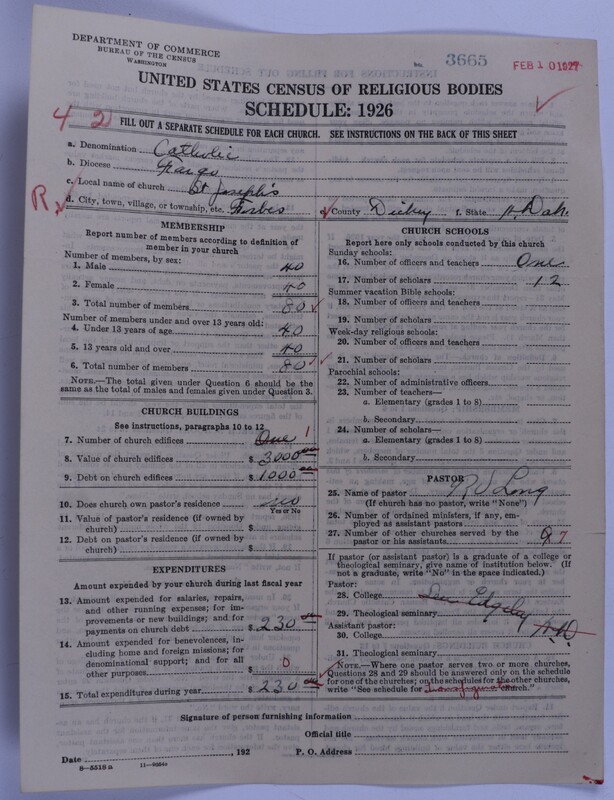 DEPARTMENT OF COMMERCE
BUREAU OF THE CENSUS
WASHINGTON
No. 3665
FEB 10 1927
UNITED STATES CENSUS OF RELIGIOUS BODIES
SCHEDULE: 1926
4 2
FILL OUT A SEPARATE SCHEDULE FOR EACH CHURCH. SEE INSTRUCTIONS ON THE BACK OF THIS SHEET
a. Denomination Catholic
b. Diocese Fargo
c. Local name of church St Joseph's
R
d. City, town, village, or township, etc. Forbes e. County Dickey f. State N. Dak.
MEMBERSHIP
Report number of members according to definition of member in your church
Number of members, by sex:
1. Male 40
2. Female 40
3. Total number of members 80
Number of members under and over 13 years old:
4. Under 13 years of age 40
5. 13 years old and over 40
6. Total number of members 80
NOTE.—The total given under Question 6 should be the same as the total of males and females given under Question 3.
CHURCH BUILDINGS
See instructions, paragraphs 10 to 12
7. Number of church edifices One 1
8. Value of church edifices $ 3000
9. Debt on church edifices $ 1000
10. Does church own pastor's residence no
Yes or No
11. Value of pastor's residence (if owned by church) $
12. Debt on pastor's residence (if owned by church) $
EXPENDITURES
Amount expended by your church during last fiscal year
13. Amount expended for salaries, repairs, and other running expenses; for improvements or new buildings; and for payments on church debt $ 230
14. Amount expended for benevolences, including home and foreign missions; for denominational support; and for all other purposes $ 0
15. Total expenditures during year $ 230
CHURCH SCHOOLS
Report here only schools conducted by this church
Sunday schools:
16. Number of officers and teachers One
17. Number of scholars 12
Summer vacation Bible schools:
18. Number of officers and teachers
19. Number of scholars
Week-day religious schools:
20. Number of officers and teachers
21. Number of scholars
Parochial schools:
22. Number of administrative officers
23. Number of teachers—
a. Elementary (grades 1 to 8)
b. Secondary
24. Number of scholars—
a. Elementary (grades 1 to 8)
b. Secondary
PASTOR
25. Name of pastor Long
(If church has no pastor, write "None")
26. Number of ordained ministers, if any, employed as assistant pastors
27. Number of other churches served by the pastor or his assistants 7
If pastor (or assistant pastor) is a graduate of a college or theological seminary, give name of institution below. (If not a graduate, write "No" in the space indicated.)
Pastor:
28. College See Edgeley
29. Theological seminary N.D.
Assistant pastor:
30. College
31. Theological seminary
NOTE.—Where one pastor serves two or more churches, Questions 28 and 29 should be answered only on the schedule for one of the churches; on the schedules for the other churches, write "See schedule for Transfiguration church."
Signature of person furnishing information
Official title
Date , 192 P. O. Address
8—5518 a